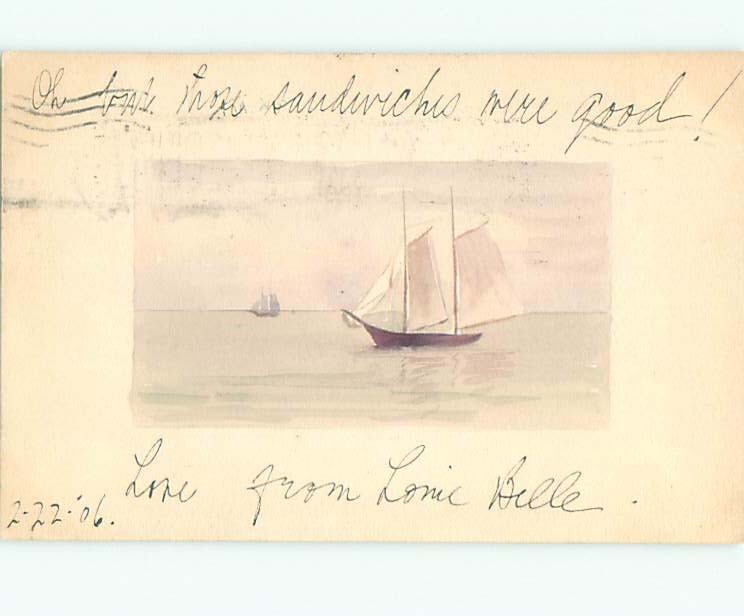 Oh but those sandwiches were good!
Love from Lonie Belle.
2-22-'06.